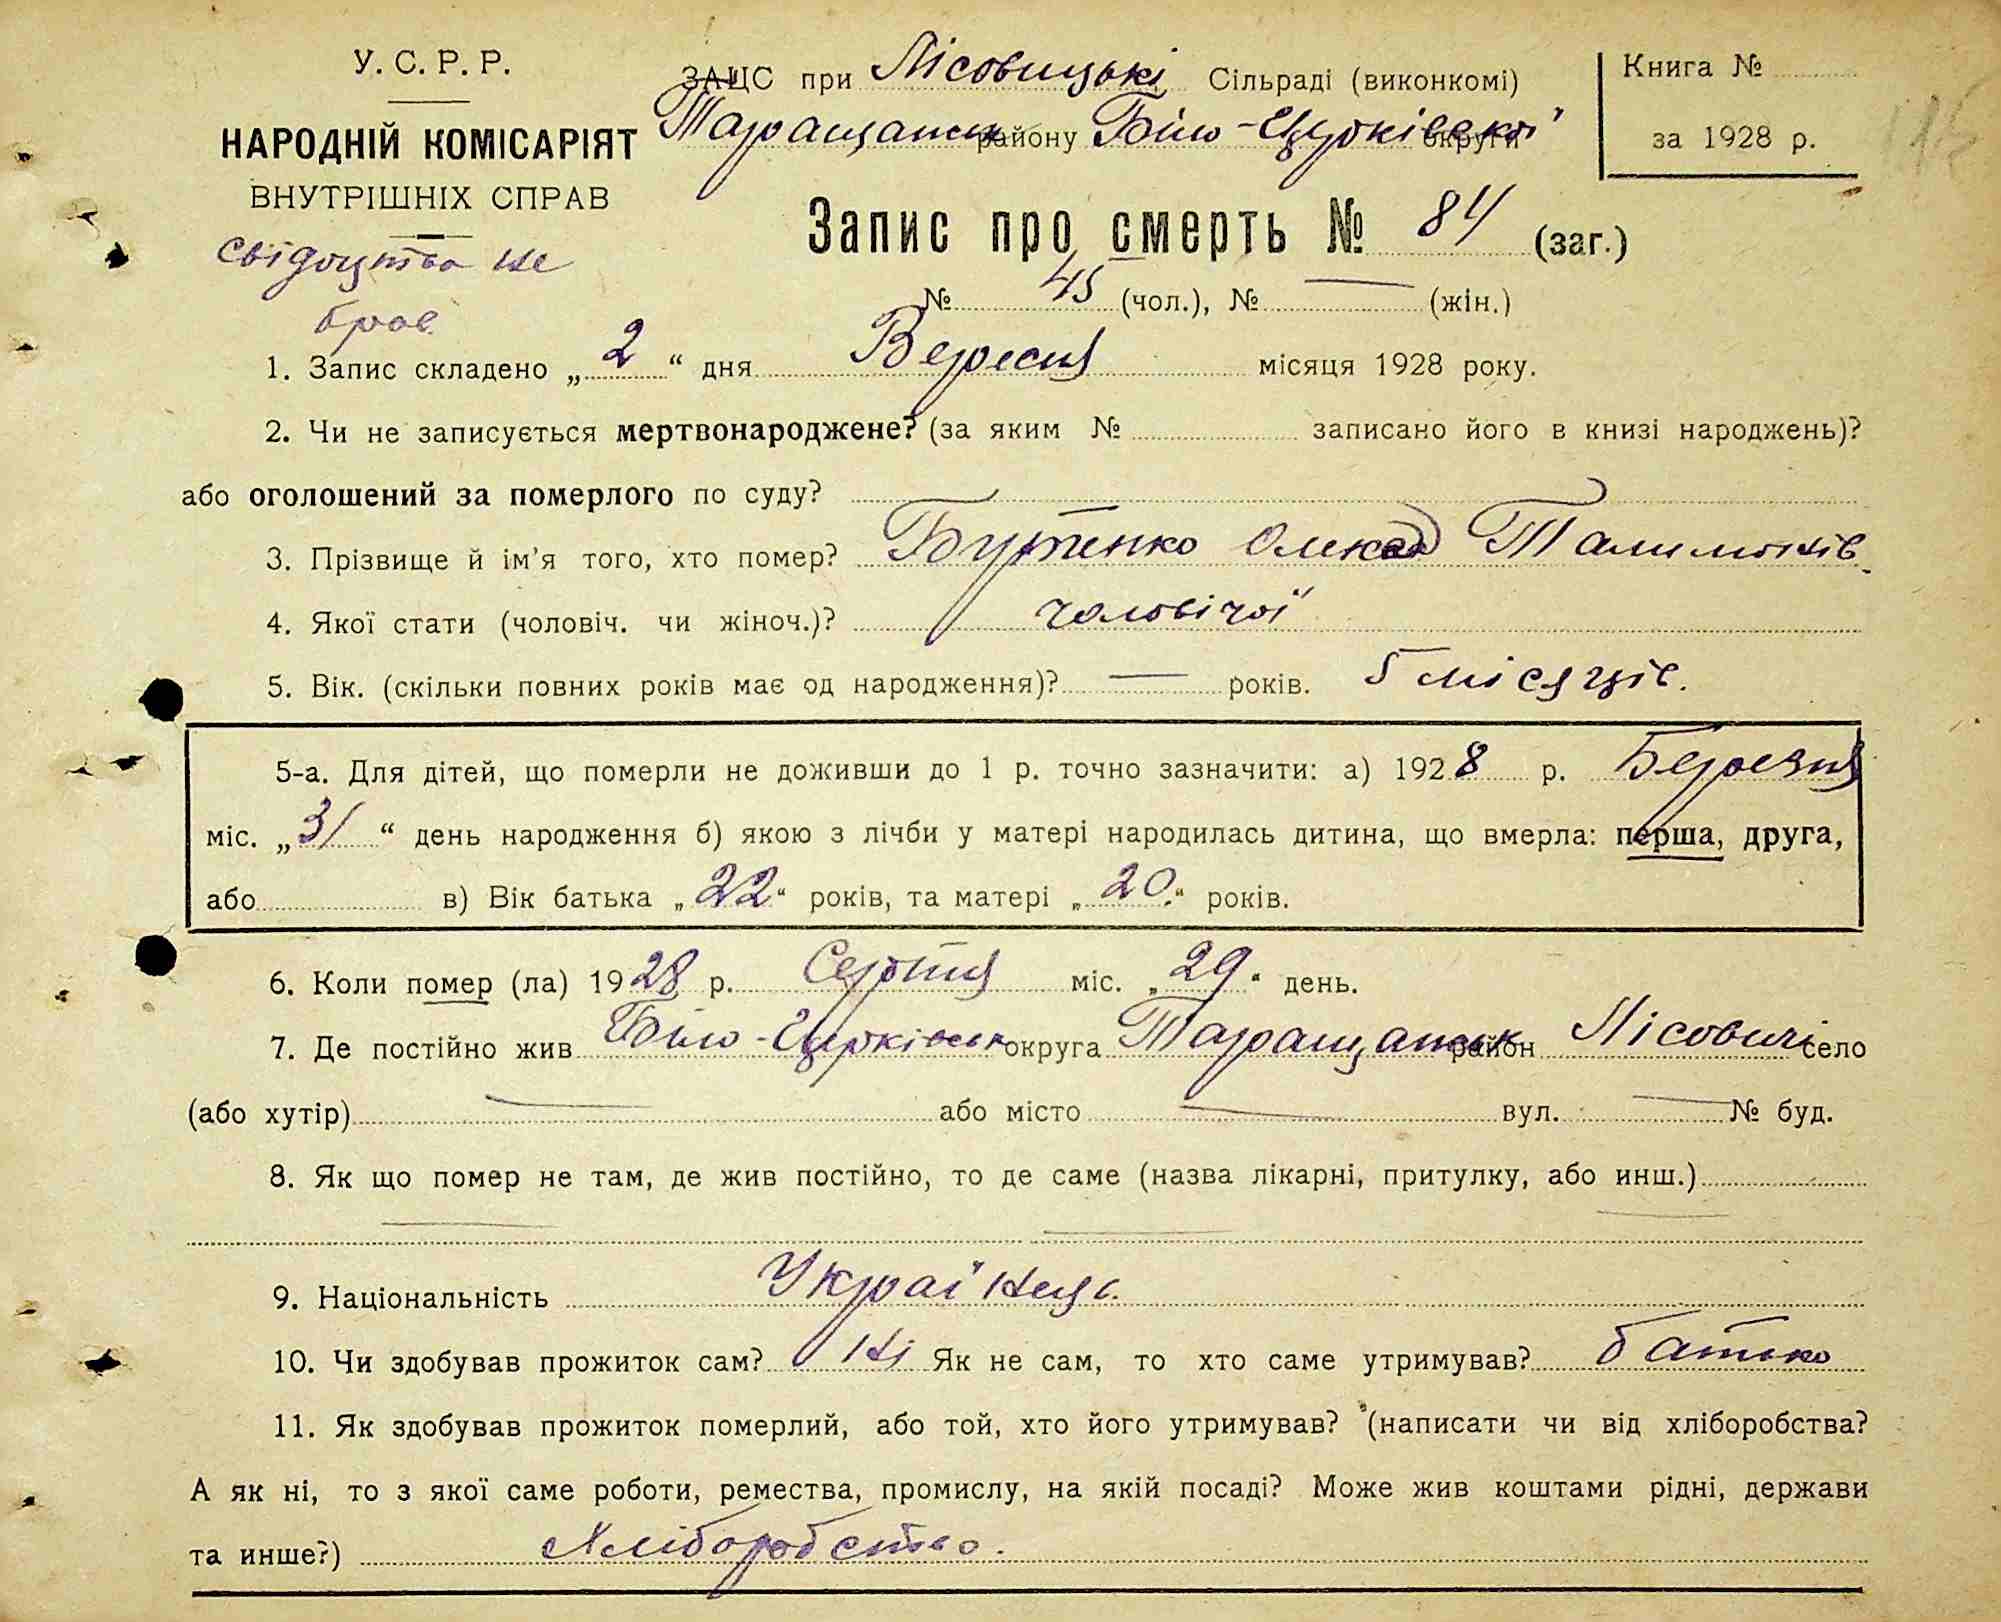 У. С. Р. Р.
НАРОДНІЙ КОМІСАРІЯТ
ВНУТРІШНІХ СПРАВ
Свідоцтва не
брав
ЗАЦС при Лісовицькі Сільраді (виконкомі)
Таращанськ району Біло-Церківської округи
Книга №
за 1928 р.
Запис про смерть № 84 (заг.)
№ 45 (чол.), № — (жін.)
1. Запис складено „2“ дня Вересня місяця 1928 року.
2. Чи не записується мертвонароджене? (за яким № записано його в книзі народжень)?
або оголошений за померлого по суду?
3. Прізвище й ім'я того, хто помер? Бутенко Олександ
4. Якої стати (чоловіч. чи жіноч.)? чоловічої
5. Вік. (скільки повних років має од народження)? — років. 5 місяців.
5-а. Для дітей, що померли не доживши до 1 р. точно зазначити: а) 1928 р. Березня
міс. „31“ день народження б) якою з лічби у матері народилась дитина, що вмерла: перша, друга,
або в) Вік батька „22“ років, та матері „20.“ років.
6. Коли помер (ла) 1928 р. Серпня міс. „29“ день.
7. Де постійно жив Біло-Церківськ округа Таращанськ район Лісовичі село
(або хутір) — або місто — вул. — № буд.
8. Як що помер не там, де жив постійно, то де саме (назва лікарні, притулку, або инш.)
— — —
9. Національність Українець.
10. Чи здобував прожиток сам? Ні Як не сам, то хто саме утримував? батько
11. Як здобував прожиток померлий, або той, хто його утримував? (написати чи від хліборобства?
А як ні, то з якої саме роботи, ремества, промислу, на якій посаді? Може жив коштами рідні, держави
та инше?) Хліборобство.